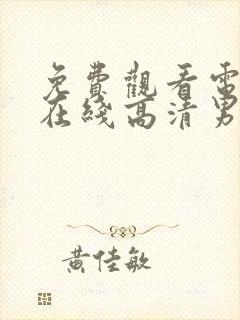 免費觀看電
在綫高清男
黃佳敏